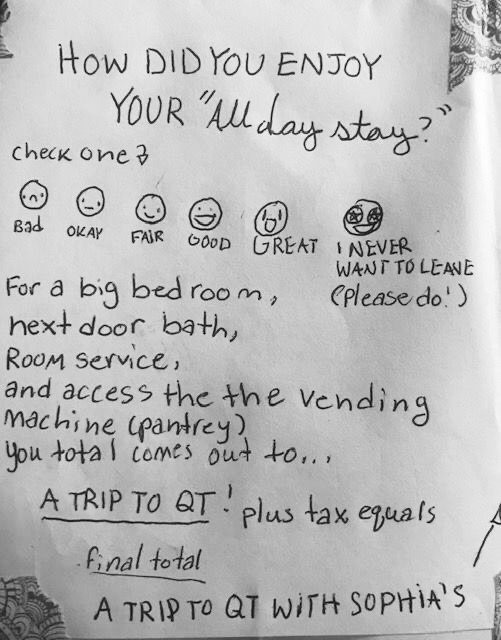 HOW DID YOU ENJOY
YOUR "All day stay?"
check one
Bad OKAY FAIR GOOD GREAT I NEVER
WANT TO LEAVE
(Please do!)
For a big bed room,
next door bath,
ROOM service,
and access the the vending
machine (pantrey)
you total comes out to...
A TRIP TO QT! plus tax equals
final total
A TRIP TO QT WITH SOPHIA'S